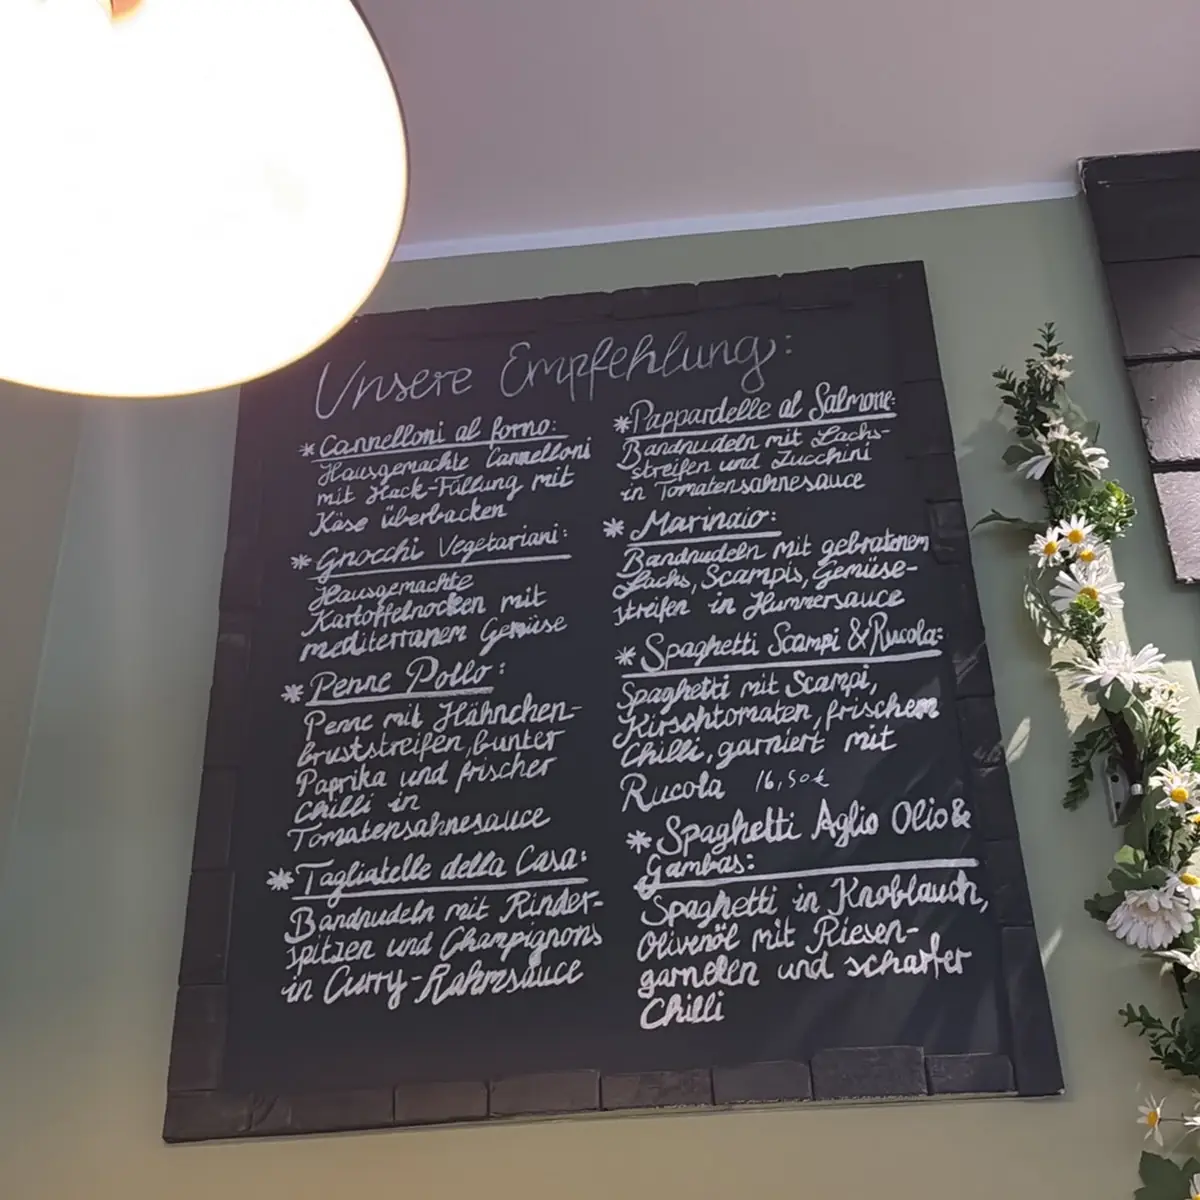 Unsere Empfehlung:
*Cannelloni al forno:
Hausgemachte Cannelloni
mit Hack-Füllung mit
Käse überbacken
*Gnocchi Vegetariani:
Hausgemachte
Kartoffelnocken mit
mediterranem Gemüse
*Penne Pollo:
Penne mit Hähnchen-
bruststreifen, bunter
Paprika und frischer
Chilli in
Tomatensahnesauce
*Tagliatelle della Casa:
Bandnudeln mit Rinder-
spitzen und Champignons
in Curry-Rahmsauce
*Pappardelle al Salmone:
Bandnudeln mit Lachs-
streifen und Zucchini
in Tomatensahnesauce
*Marinaio:
Bandnudeln mit gebratenem
Lachs, Scampis, Gemüse-
streifen in Hummersauce
*Spaghetti Scampi & Rucola:
Spaghetti mit Scampi,
Kirschtomaten, frischem
Chilli, garniert mit
Rucola 16,50€
*Spaghetti Aglio Olio &
Gambas:
Spaghetti in Knoblauch,
Olivenöl mit Riesen-
garnelen und scharfer
Chilli